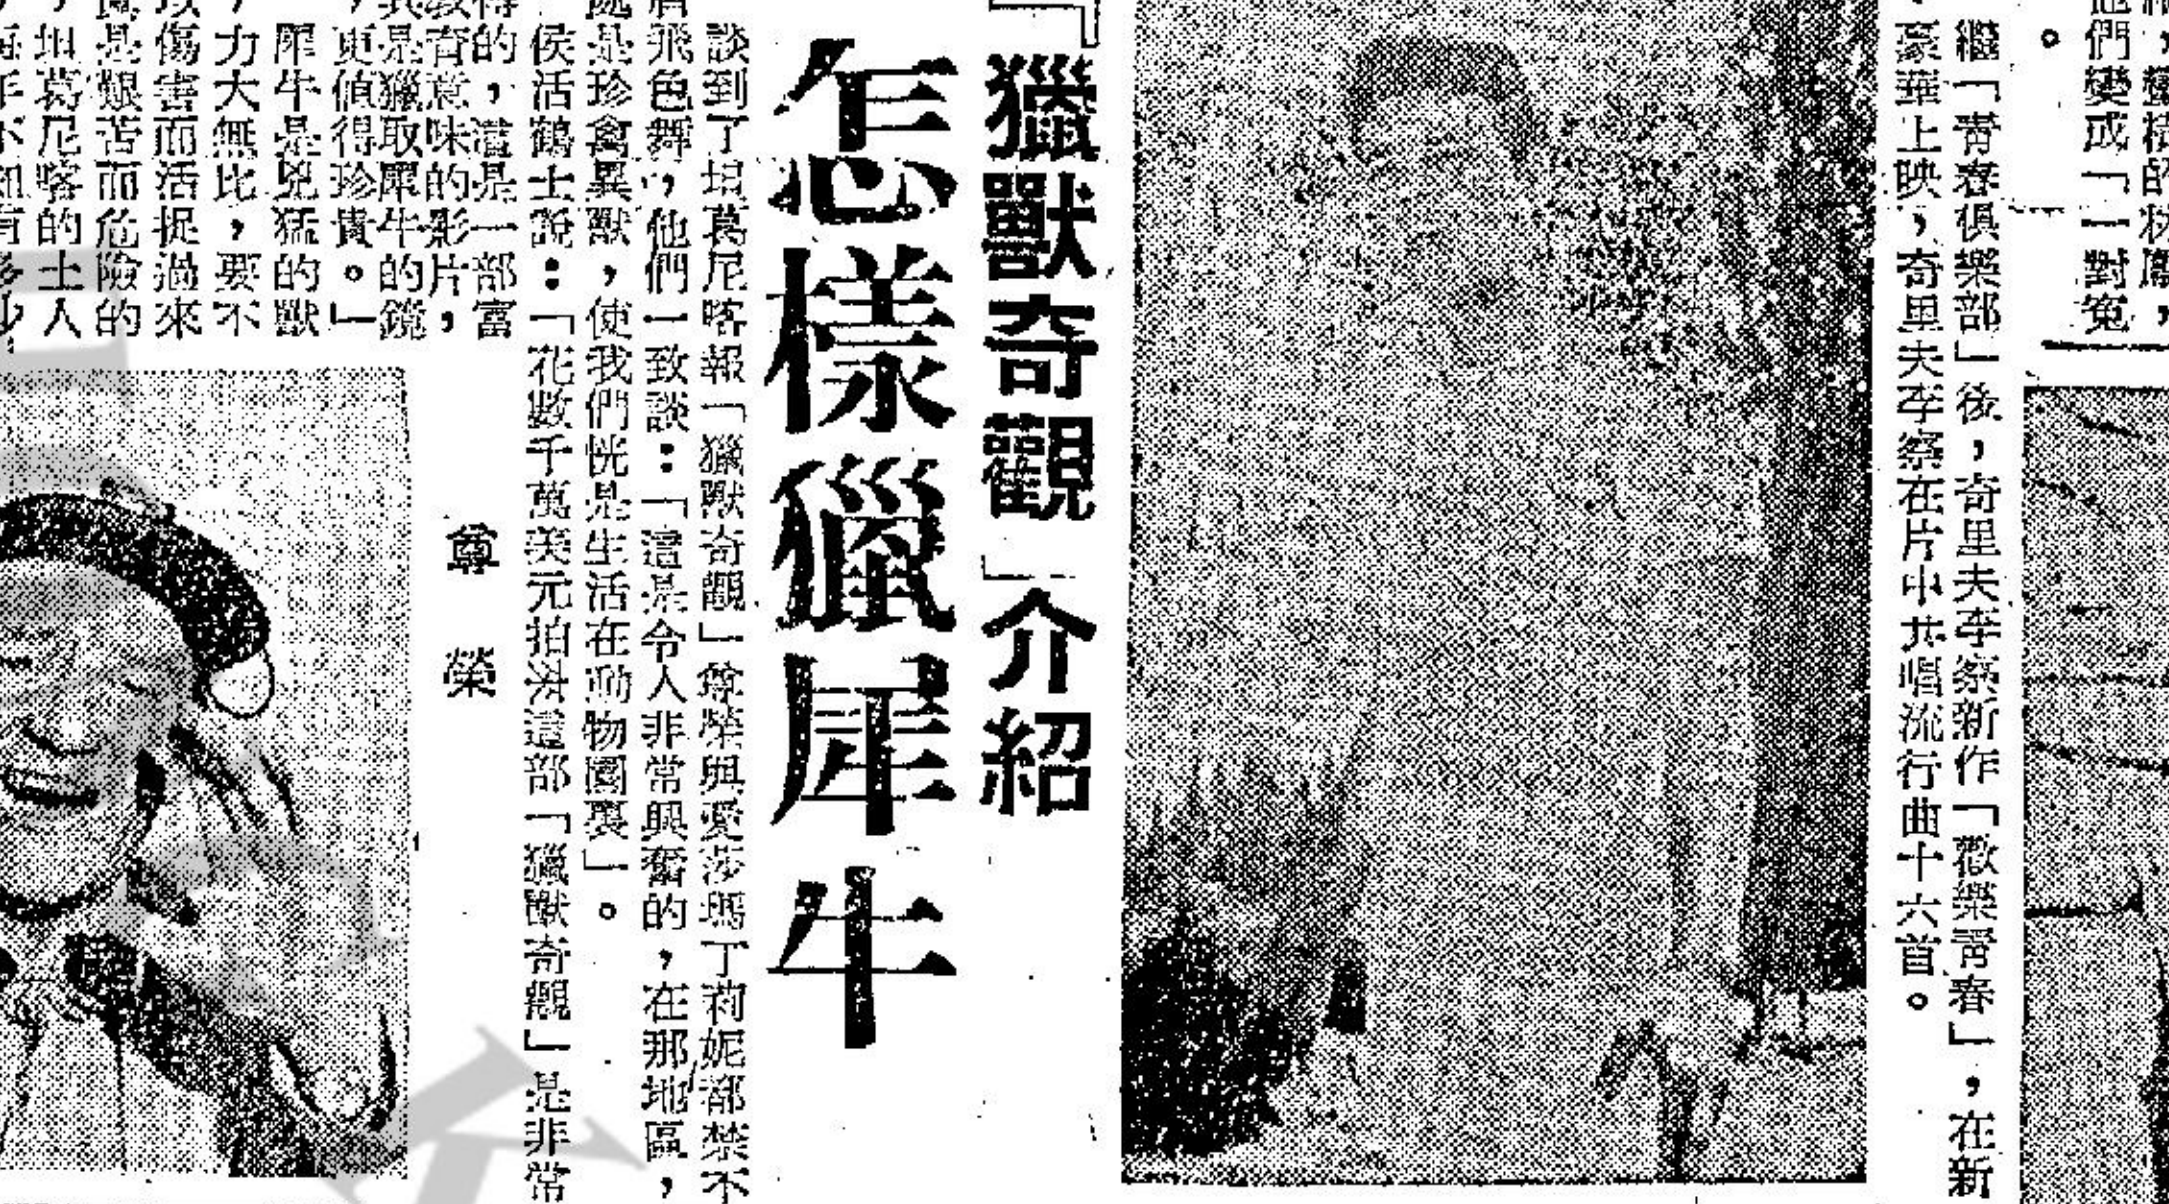 他們變成「一對寃
。
繼「青春俱樂部」後，奇里夫李察新作「歡樂青春」，在新
豪華上映，奇里夫李察在片中共唱流行曲十六首。
『獵獸奇觀』介紹
怎樣獵犀牛
談到了坦葛尼喀報「獵獸奇觀」尊榮與愛莎瑪丁莉妮都禁不
飛色舞，他們一致談：「這是令人非常興奮的，在那地區，
是珍禽異獸，使我們恍是生活在動物園裏」。
侯活鶴士說：「花數千萬美元拍㳫這部「獵獸奇觀」是非常
的，這是一部富
教育意味的影片，
是獵取犀牛的鏡
，更值得珍貴。」
犀牛是兇猛的獸
，力大無比，要不
傷害而活捉過來
是艱苦而危險的
，坦葛尼喀的土人
每年不知有多少
尊榮